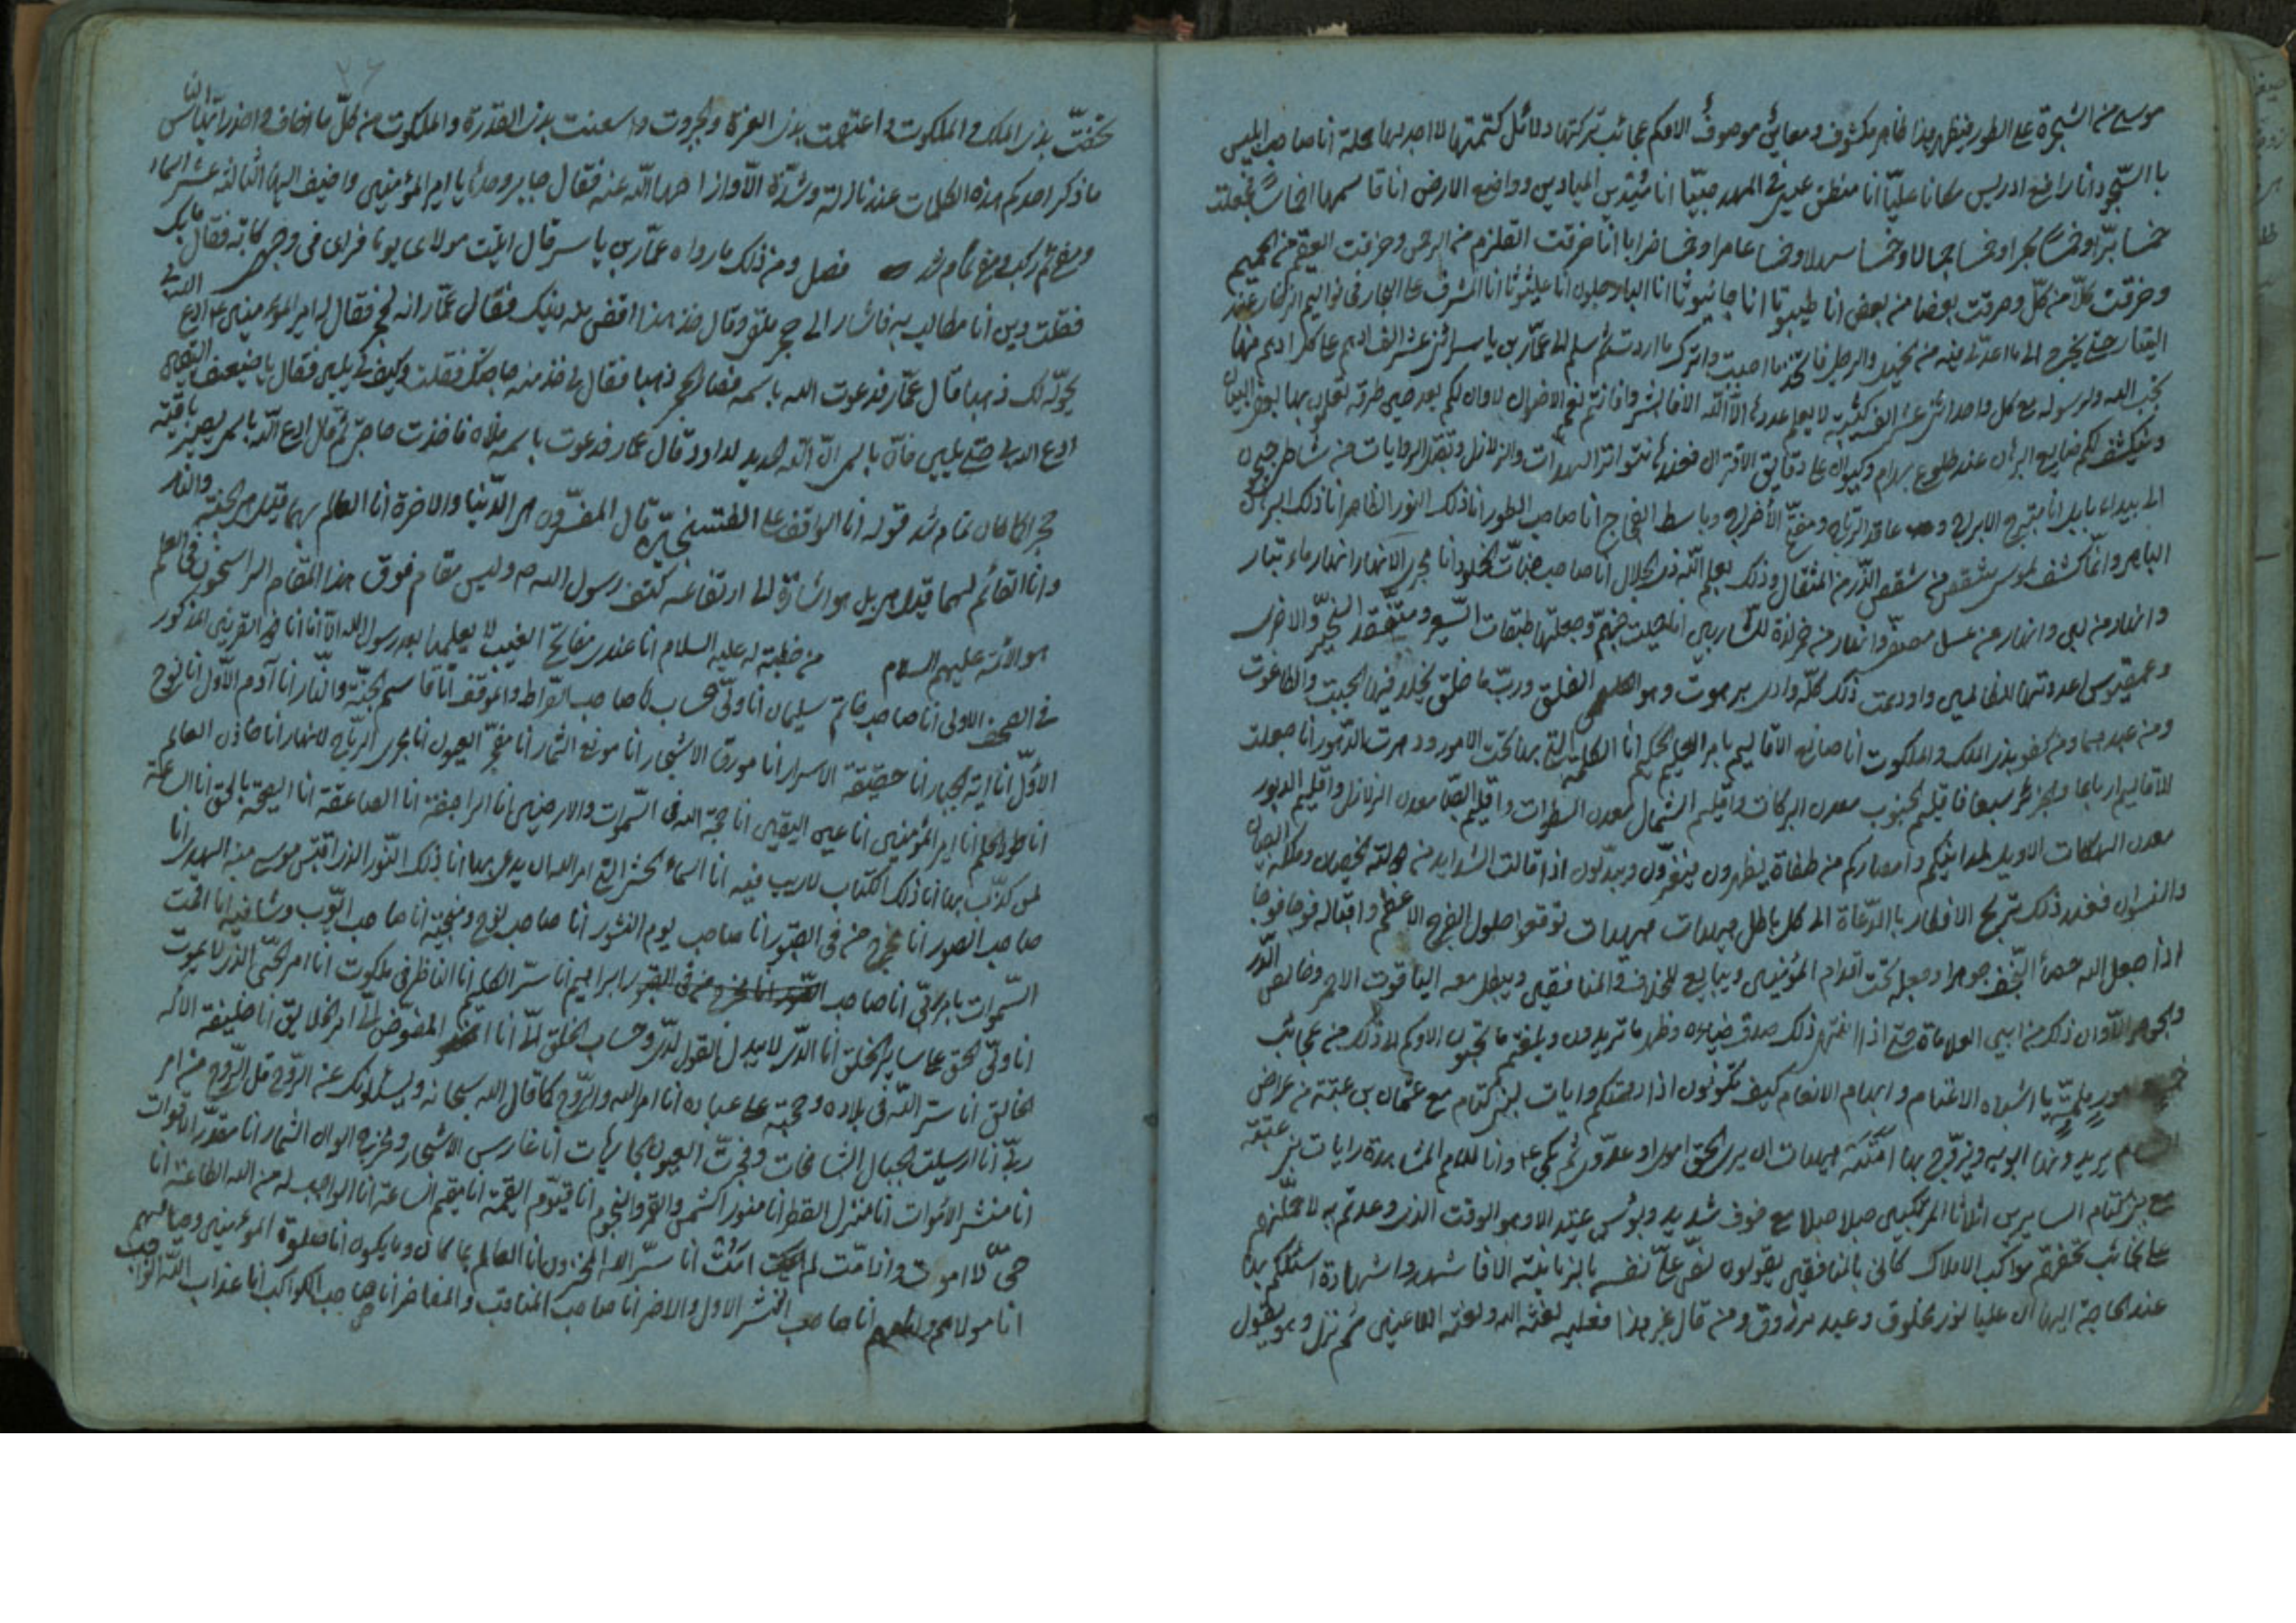 موسى من الشجرة على الطور فيظهر هذا ظاهر مكشوف ومعاين موصوف ألا وكم عجائب تركتها ودلائل كتمتها لا اجد لها حملة انا صاحب ابليس
بالسجود انا رافع ادريس مكانا عليّا انا منطق عيسى فى المهد صبيّا انا مديّن الميادين وواضع الارض انا قاسمها اخماسا فجعلت
خمسا برّا وخمسا بحرا وخمسا جبالا وخمسا سهلا وخمسا عامرا وخمسا خرابا انا خرقت القلزم من الرحيم وخرقت العقيم من الحميم
وخرقت كلّا من كلّ وخرقت بعضا من بعض انا طيبوثا انا جانبوثا انا البارحلون انا عليثوثا انا المشرف على البحار فى نواليم الزخار عند
حتى يخرج الى ما اعدّ لى فيه من الخيل والرجل فاتخذ ما احببت واترك ما اردت ثم سلم الى عمّار بن ياسر اثنى عشر الف ادهم على كل ادهم منها
محب لله ولرسوله مع كل واحد اثنى عشر الف كتيبة لا يعلم عددها الا الله الا فابشروا فانتم نعم الاخوان الا وان لكم بعد حين طرفة تعلمون بها بعض البيان
وينكشف لكم صنايع البرهان عند طلوع بهرام وكيوان على دقايق الاقتران فعندها تتواتر الهدات والزلازل وتقبل الرايات من شاطى جيحون
الى بيداء بابل انا مبرج الابراج وعاقد الرتاج ومفتح الأفراج وباسط الفجاج انا صاحب الطور انا ذلك النور الظاهر انا ذلك البرهان
الباهر وانما كشف لموسى شقص من شقص الذر من المثقال وذلك بعلم الله ذى الجلال انا صاحب جنّات الخلود انا مجرى الانهار انهار ماء تيار
وانهار من لبن وانهار من عسل مصفى وانهار من خمر لذة للشاربين انا حجبت جهنم وجعلتها طبقات السعير وسقر والاخرى
وعمقيوس اعددتها للظالمين واودعت ذلك كلّه وادى برهوت وهو الفلق وربّ ما خلق يخلد فيها الجبت والطاغوت
ومن عبدهما ومن كفر بذى الملك والملكوت انا صانع الاقاليم بامر العليم الحكيم انا الكلمة التى بها تمت الامور ودهرت الدّهور انا جعلت
الاقاليم ارباعا والجزائر سبعا فاقليم الجنوب معدن البركات واقليم الشمال معدن السطوات واقليم الصّبا معدن الزلازل واقليم الدبور
معدن الهلكات الا ويل لمداينكم وامصاركم من طغاة يظهرون فيغيّرون ويبدّلون اذا تمالت الشدايد من دولة الخصيان ومملكة الصبيان
والنسوان فعند ذلك ترتج الاقطار بالدّعاة الى كل باطل هيهات هيهات توقعوا حلول الفرج الاعظم واقباله فوجا فوجا
اذا جعل الله حصباء النّجف جوهرا وجعله تحت اقدام المؤمنين ويبايع للخلاف والمنافقين ويبطل معه الياقوت الاحمر وخالص الدّر
والجوهر الا وان ذلك من ابين العلامات حتى اذا انتهى ذلك صدق ضياءه وظهر ما تريدون وبلغتم ما تحبون الا وكم الى ذلك من عجائب
وامور ملمّة يا اشباه الاغنام وابهام الانعام كيف تكونون اذا دهمتكم رايات لبنى كنام مع عثمان بن عنبسة من عراض
الشام يريد بها ابويه ويزوّج بها امّته هيهات ان يرى الحق اموى او عدوىّ ثم بكى ع وقال واها للامم المشاهدة رايات بنى عتبة
مع بنى كنام السايرين اثلاثا المرتكبين جبلا جبلا مع خوف شديد وبؤس عتيد الا وهو الوقت الذى وعدتم به لاحملنّهم
على نجائب تحفهم مواكب الافلاك كانى بالمنافقين يقولون نصّ علىّ على نفسه بالربانية الا فاشهدوا شهادة اسئلكم بها
عند الحاجة اليها ان عليا نور مخلوق وعبد مرزوق ومن قال غير هذا فعليه لعنة الله ولعنة اللاعنين ثم نزل وهو يقول
تحصّنت بذى الملك والملكوت واعتصمت بذى العزة والجبروت واستعنت بذى القدرة والملكوت من كلّ ما اخاف واحذر ايّها الناس
ما ذكر احدكم هذه الكلمات عند نازلة وشدّة الّا وازاحها الله عنه فقال جابر وحدها يا امير المؤمنين فقال واضيف اليها الثالثة عشر اسماء
فصل ومن ذلك ما رواه عمّار بن ياسر قال اتيت مولاى يوما فراى فى وجهى كآبة فقال ما بك
فقلت دين أتى مطالب به فاشار الى حجر ملقى وقال خذ هذا اقض منه دينك فقال عمّار انه لحجر فقال له امير المؤمنين ع ادع الله بى
يحوّله لك ذهبا قال عمّار فدعوت الله باسمه فصار الحجر ذهبا فقال لى خذ منه حاجتك فقلت وكيف تلين فقال يا ضعيف اليقين
ادع الله بى حتى تلين فانّ باسمى الان الله الحديد لداود قال عمار فدعوت باسمه فلان فاخذت حاجتى ثم قال ادع اللّه باسمى يصير باقيه
حجرا كما كان تمام شد قوله انا الواقف على الطتنجين قال المفسّرون هى الدّنيا والاخرة انا العالم بهما قيل هى الجنة والنار
وانا القائم لهما قيل هى بل هو اشارة الى ارتفاعه كتف رسول الله ص وليس مقام فوق هذا المقام الراسخون فى العلم
هو والائمة عليهم السلام من خطبة له عليه السلام انا عندى مفاتح الغيب لا يعلمها بعد رسول الله الّا انا انا ذو القرنين المذكور
فى الصحف الاولى انا صاحب خاتم سليمان انا ولىّ الحساب انا صاحب الصّراط والموقف انا قاسم الجنّة والنّار انا آدم الأوّل انا نوح
الأوّل انا آية الجبار انا حقيقة الاسرار انا مورق الاشجار انا مونع الثمار انا مفجّر العيون انا مجرى الرياح الانهار انا خازن العلم
انا طور الحلم انا امير المؤمنين انا عين اليقين انا حجة الله فى السّموات والارضين انا الراجفة انا الصاعقة انا الصيحة بالحق انا الساعة
لمن كذّب بها انا ذلك الكتاب لا ريب فيه انا اسماء الحسنى التى امر الله ان يدعى بها انا ذلك النّور الذى اقتبس موسى منه الهدى انا
صاحب الصور انا مخرج من فى القبور انا صاحب يوم النشور انا صاحب نوح ومنجيه انا صاحب ايّوب وشافيه انا اقمت
السّموات بامر ربّى انا صاحب ابراهيم انا سرّ الكليم انا الناظر فى ملكوت انا امر الحىّ الذى لا يموت
انا ولىّ الحق على ساير الخلق انا الذى لا يبدل القول لدىّ وحساب الخلق الىّ انا المفوّض الىّ امر الخلايق انا خليفة الاله
الخالق انا سرّ اللّه فى بلاده وحجته على عباده انا امر الله والرّوح كما قال الله سبحانه ويسئلونك عن الرّوح قل الرّوح من امر
ربّى انا ارسيت الجبال الشامخات وفجرت العيون الجاريات انا غارس الاشجار ومخرج الوان الثمار انا مقدّر الاقوات
انا منشر الاموات انا منزل القطر انا منور الشمس والقمر والنجوم انا قيّوم القيمة انا مقيم الساعة انا الواجب له من الله الطاعة انا
حىّ لا اموت واذا متّ لم امت انا سرّ الله المخزون انا العالم بما كان وما يكون انا صلوة المؤمنين وصيامهم
انا مولاهم وامامهم انا صاحب النشر الاول والاخر انا صاحب المناقب والمفاخر انا صاحب الكواكب انا عذاب اللّه الواصب